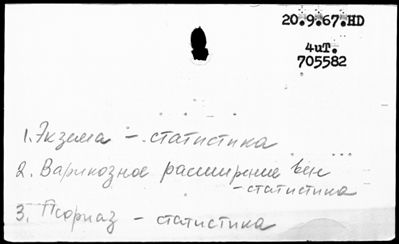 20.9.67.HD
4uT.
705582
1. Экзема – статистика
2. Варикозное расширение вен
– статистика
3. Псориаз – статистика